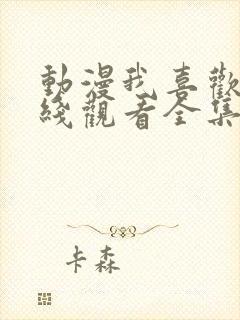 動漫我喜歡
綫觀看全集
卡森